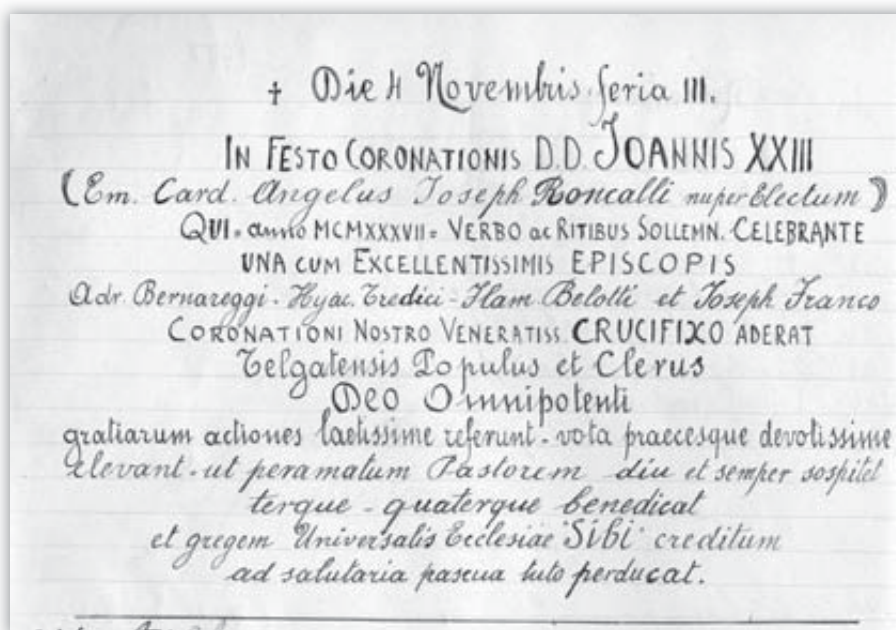 † Die 4 Novembris feria III.
IN FESTO CORONATIONIS D.D. JOANNIS XXIII
(Em. Card. Angelus Joseph Roncalli nuper Electum)
QUI = anno MCMXXXVII = VERBO ac RITIBUS SOLLEMN. CELEBRANTE
UNA CUM EXCELLENTISSIMIS EPISCOPIS
Adr. Bernareggi - Hyac. Tredici - Flam. Belotti et Joseph Franco
CORONATIONI NOSTRO VENERATISS. CRUCIFIXO ADERAT
Telgatensis Populus et Clerus
DEO Omnipotenti
gratiarum actiones laetissime referunt - vota praecesque devotissime
elevant - ut peramatum Pastorem diu et semper sospitet
terque - quaterque benedicat
et gregem Universalis Ecclesiae "SIBI" creditum
ad salutaria pascua tuto perducat.